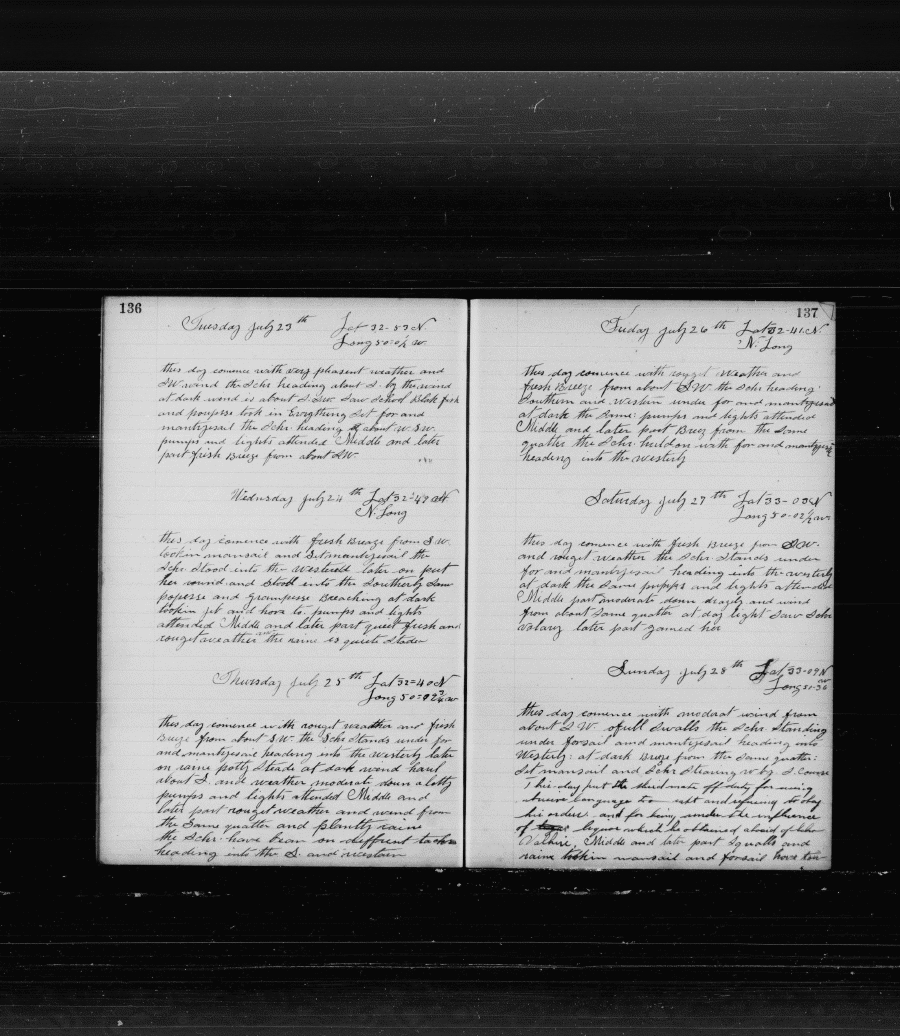 136
Tuesday July 23th Lat 32-53 N
Long 50-01/2 W
this day comence with very phesent weather and
SW wind the Schr heading about S. by the wind
at dark wind is about S.SW. Saw School Black fish
and poupess took in Everything Set for and
mantzesail the Schr heading about W.SW.
pumps and lights attended Middle and later
part fresh Breeze from about SW
Wednesday July 24th Lat 32-49 N
N. Long
this day comence with fresh Breeze from S.W.
tookin mansail and Set mantzesail the
Schr Stood into the Westerd later on put
her round and Stood into the Southerly Saw
popesse and Grampesse Breaching at dark
tookin jib and hove to. pumps and lights
attended Middle and later part quiet fresh and
rouget weather the raine is quiete Stader
Thursday July 25th Lat 32-40 N
Long 50-02 3/4 W
this day comence with rouget weather and fresh
Breeze from about SW. the Schr Stands under for
and mantzesail heading into the westerly later
on raine potty Steade at dark wind haul
about S. and weather moderate down a lotty
pumps and lights attended Middle and
later part rouget weather and wind from
the Same quatter and plantty raine
the Schr have bean on deffrent tackes
heading into the S. and western
137
Friday July 26th Lat 32-41 N
N. Long
this day comence with rouget Weather and
fresh Breeze from about SW. the Schr heading
Southern and Western under for and mantzesail
at dark the Same pumps and lights attended
Middle and later part Breez from the Same
quatter the Schr heildon with for and mantzesail
heading into the Westerly
Saturday July 27th Lat 33-03 N
Long 50-02 1/2 W
this day comence with fresh Breeze from SW.
and rouget weather the Schr Stands under
for and mantzesail heading into the westerly
at dark the Same pumps and lights attended
Middle part moderate down drazly and wind
from about Same quatter at day light Saw Schr
later part gamed her
Sunday July 28th Lat 33-09 N
Long 51-30 W
this day comence with moderat wind from
about SW. of full Swalls the Schr Standing
under forsail and mantzesail heading into
Westerly: at dark Breeze from the Same quatter:
Set mansail and Schr Stearing W by S. Course
This day put the third mate off duty for using
language to and refusing to obay
his orders. and for being under the influence
of liquor which he obtained aboard of
Middle and later part Squalls and
raine tookin mansail and forsail hove